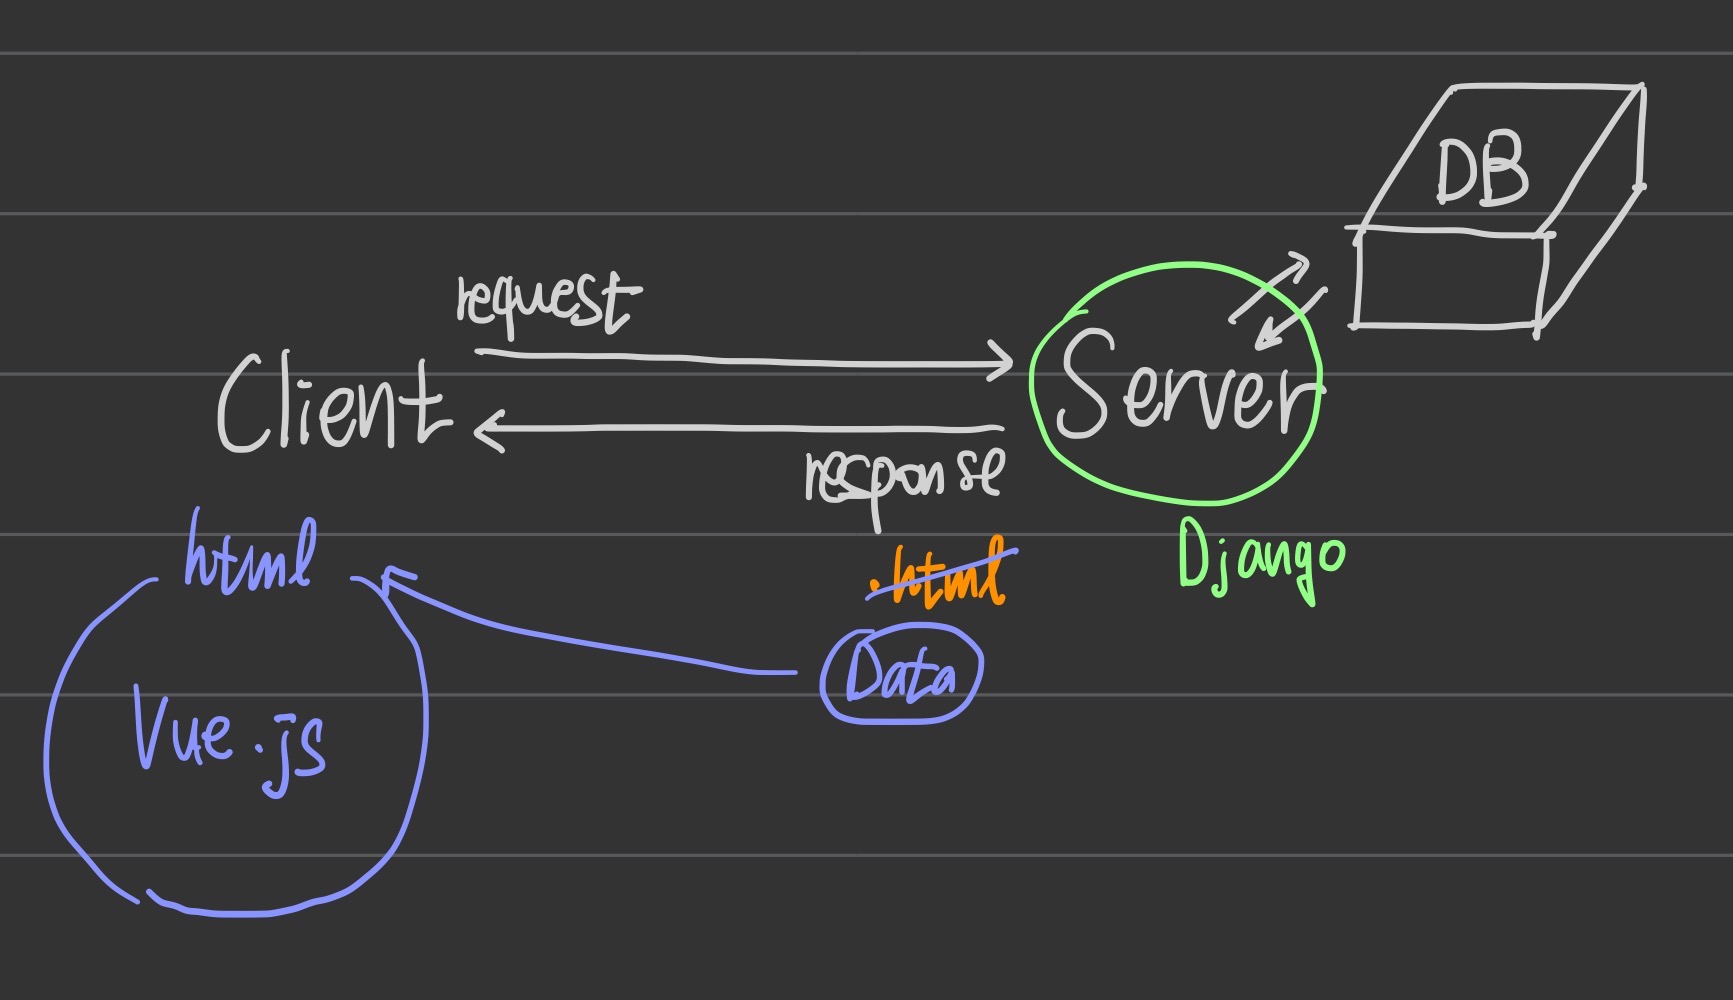 DB
request
Client
Server
response
html
.html
Django
Data
Vue.js